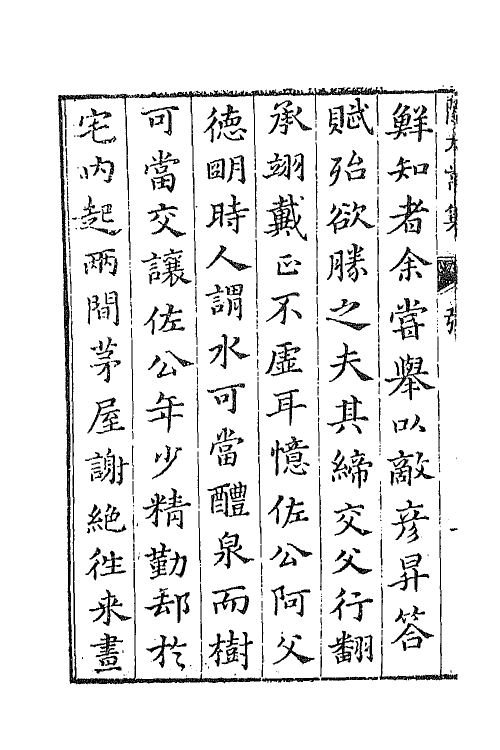 鮮知者余嘗舉以敵彦昇答
賦殆欲勝之夫其締交父行翻
承翊戴正不虚耳憶佐公阿父
徳明時人謂水可當醴泉而樹
可當交讓佐公年少精勤却於
宅内起兩間茅屋謝絶徃来晝